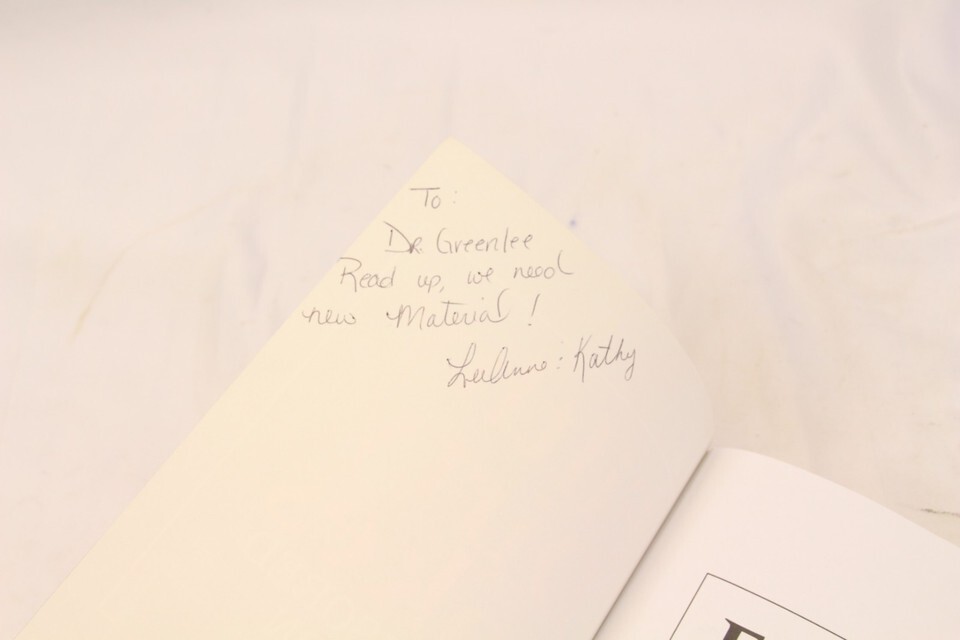 To:
Dr. Greenlee
Read up, we need
new Material!
LeeAnne : Kathy